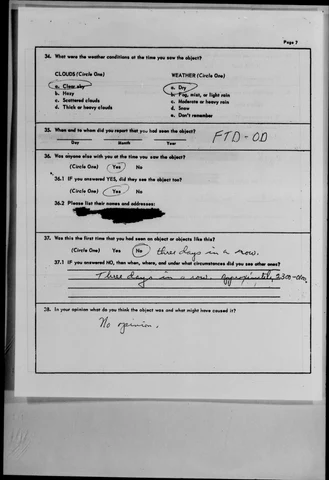 Page 7
34. What were the weather conditions at the time you saw the object?
CLOUDS (Circle One) WEATHER (Circle One)
a. Clear sky a. Dry
b. Hazy b. Fog, mist, or light rain
c. Scattered clouds c. Moderate or heavy rain
d. Thick or heavy clouds d. Snow
e. Don't remember
35. When and to whom did you report that you had seen the object?
FTD-OD
Day Month Year
36. Was anyone else with you at the time you saw the object?
(Circle One) Yes No
36.1 IF you answered YES, did they see the object too?
(Circle One) Yes No
36.2 Please list their names and addresses:
37. Was this the first time that you had seen an object or objects like this?
(Circle One) Yes No three days in a row.
37.1 IF you answered NO, then when, where, and under what circumstances did you see other ones?
Three days in a row. approximately, 2300-
38. In your opinion what do you think the object was and what might have caused it?
No opinion.